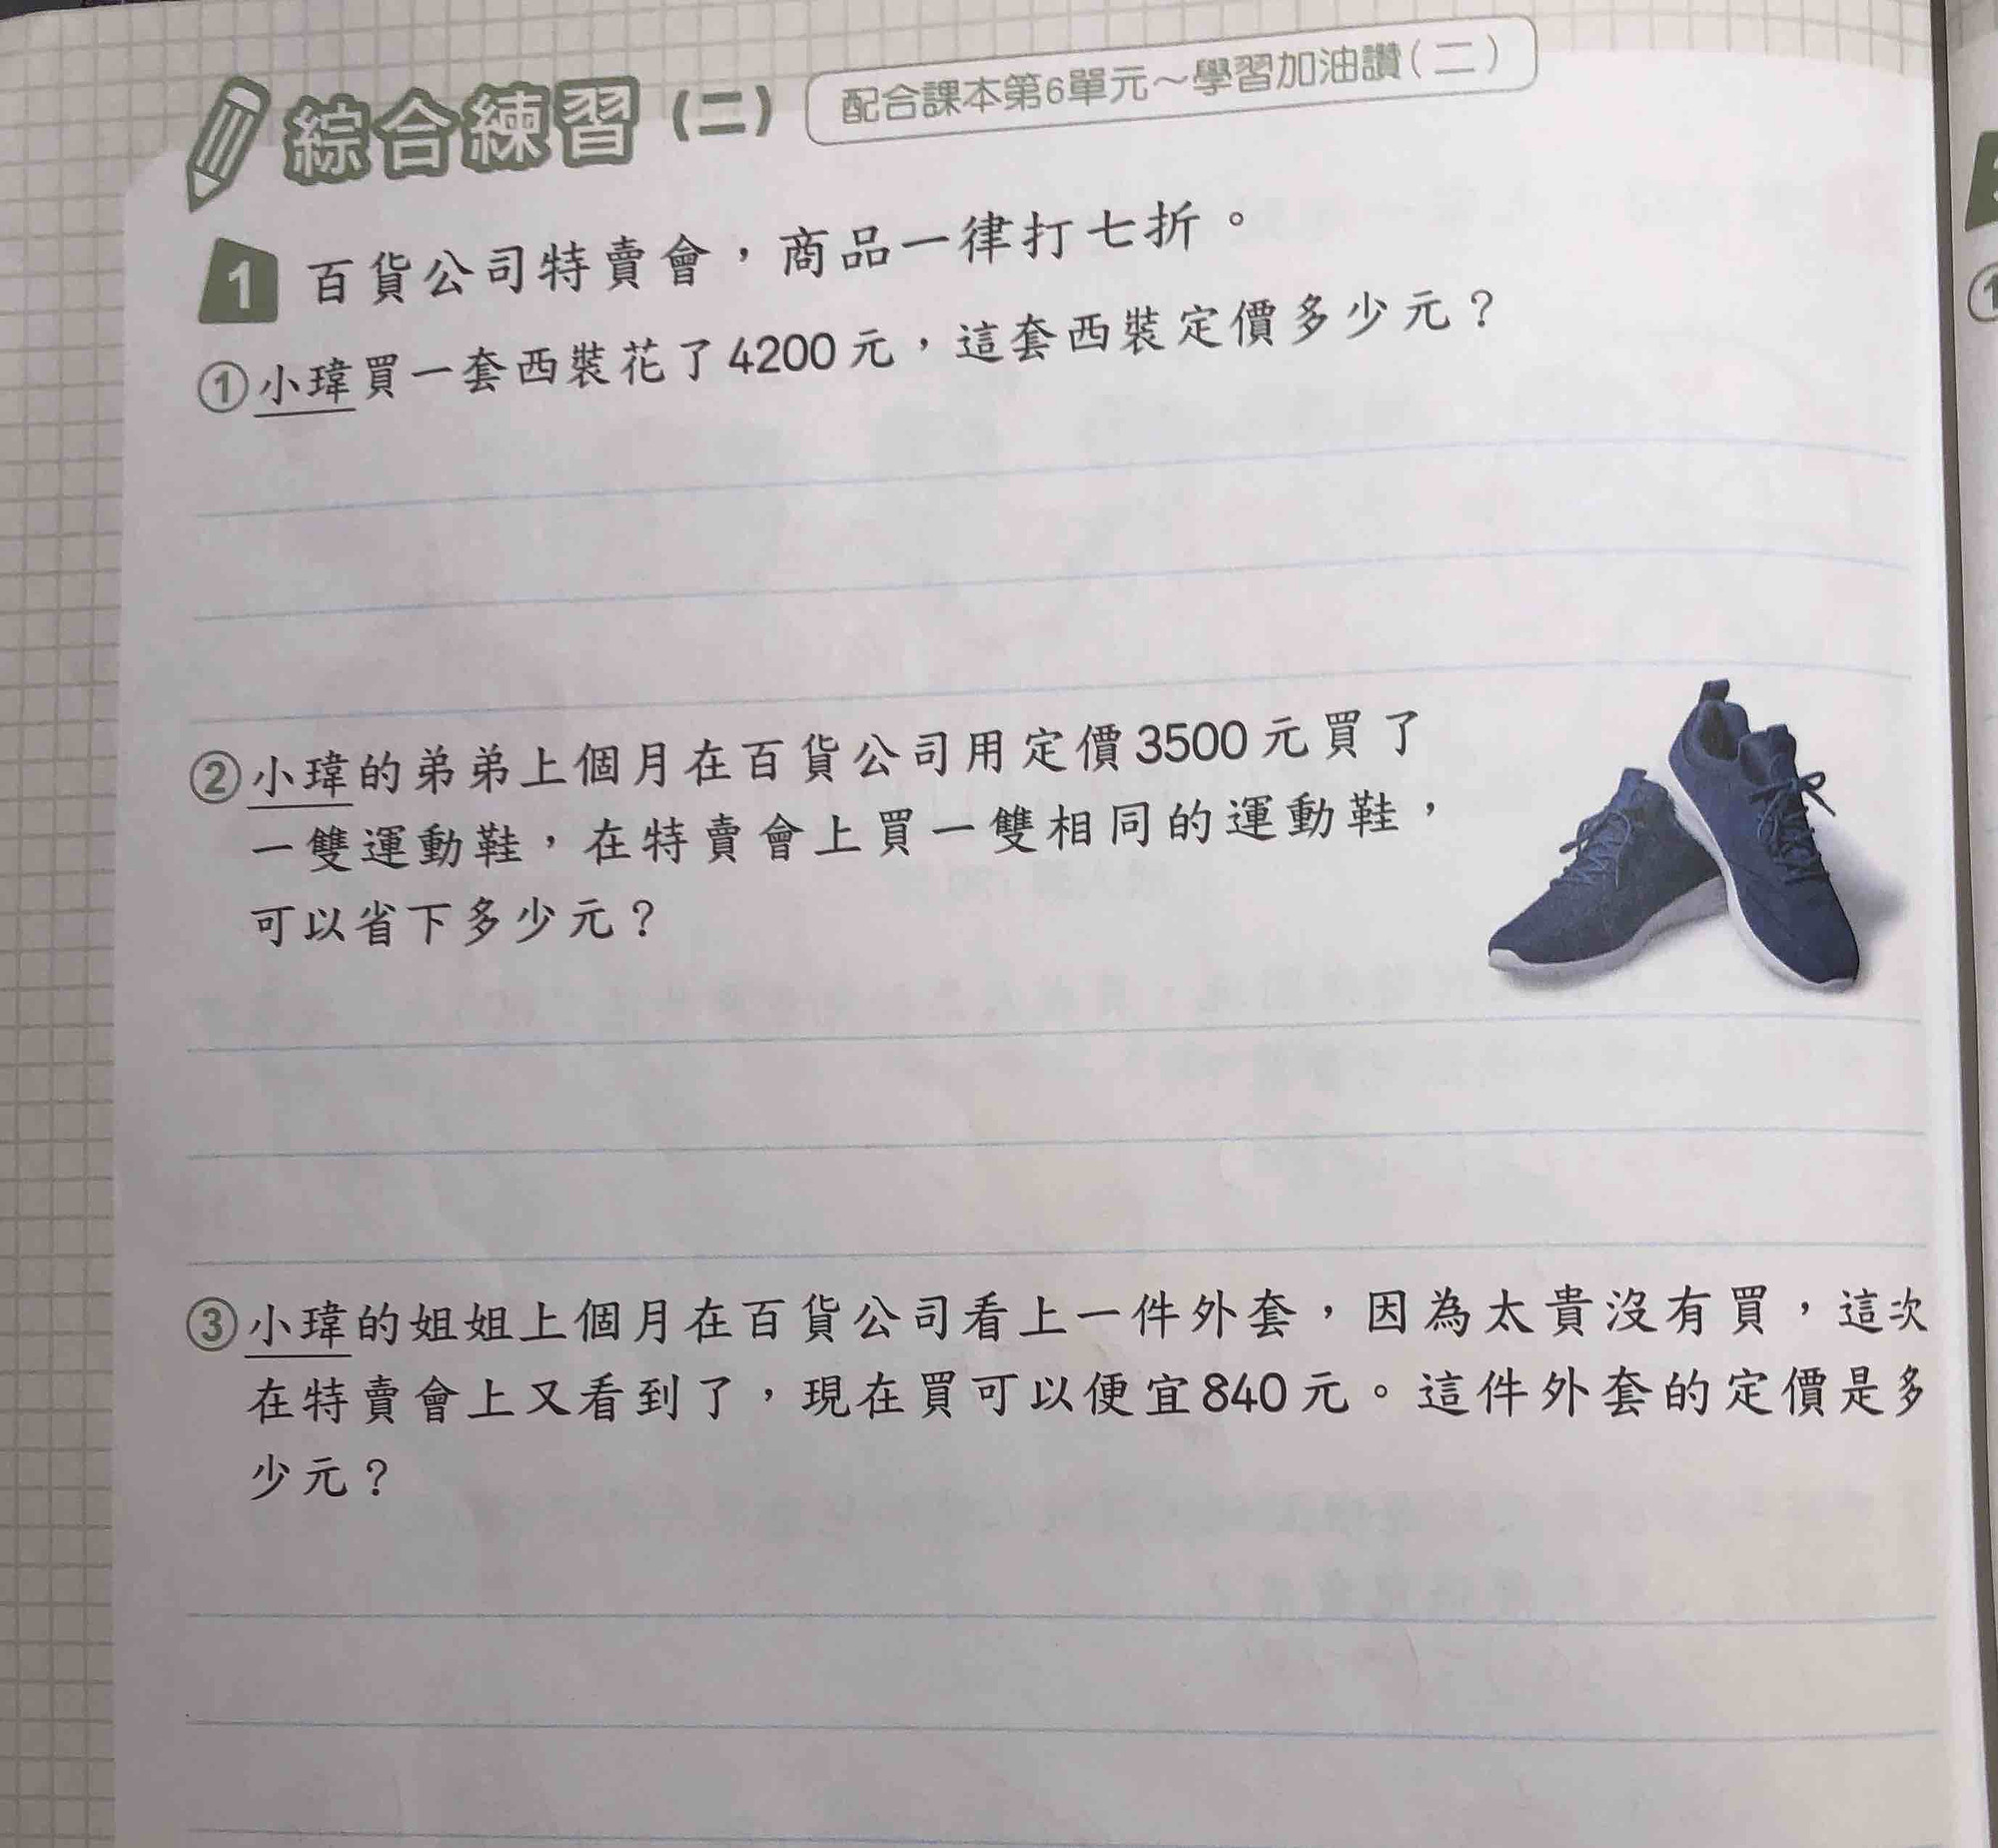 綜合練習(二) 配合課本第6單元~學習加油讚(二)
1 百貨公司特賣會，商品一律打七折。
①小瑋買一套西裝花了4200元，這套西裝定價多少元？
②小瑋的弟弟上個月在百貨公司用定價3500元買了
一雙運動鞋，在特賣會上買一雙相同的運動鞋，
可以省下多少元？
③小瑋的姐姐上個月在百貨公司看上一件外套，因為太貴沒有買，這次
在特賣會上又看到了，現在買可以便宜840元。這件外套的定價是多
少元？
①